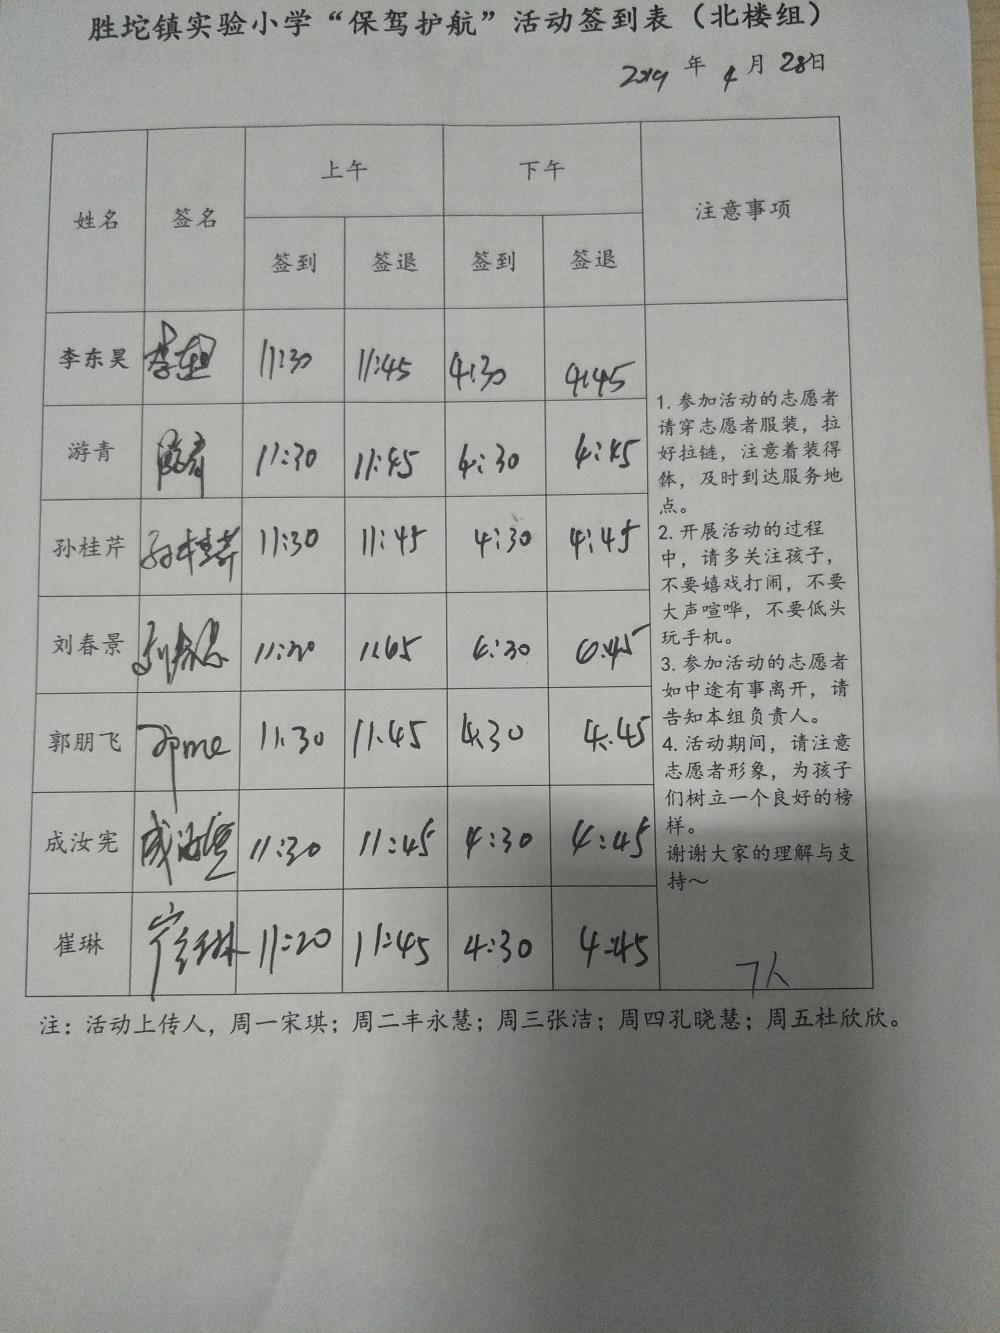 胜坨镇实验小学“保驾护航”活动签到表（北楼组）
2019 年 4 月 28日
姓名 签名 上午 下午 注意事项
签到 签退 签到 签退
李东昊 11:30 11:45 4:30 4:45
游青 游青 11:30 11:45 4:30 4:45
孙桂芹 孙桂芹 11:30 11:45 4:30 4:45
刘春景 刘春景 11:20 11:45 4:30 4:45
郭朋飞 11:30 11:45 4:30 4:45
成汝宪 成汝宪 11:30 11:45 4:30 4:45
崔琳 崔琳 11:20 11:45 4:30 4:45
1. 参加活动的志愿者
请穿志愿者服装，拉
好拉链，注意着装得
体，及时到达服务地
点。
2. 开展活动的过程
中，请多关注孩子，
不要嬉戏打闹，不要
大声喧哗，不要低头
玩手机。
3. 参加活动的志愿者
如中途有事离开，请
告知本组负责人。
4. 活动期间，请注意
志愿者形象，为孩子
们树立一个良好的榜
样。
谢谢大家的理解与支
持～
7人
注：活动上传人，周一宋琪；周二丰永慧；周三张洁；周四孔晓慧；周五杜欣欣。